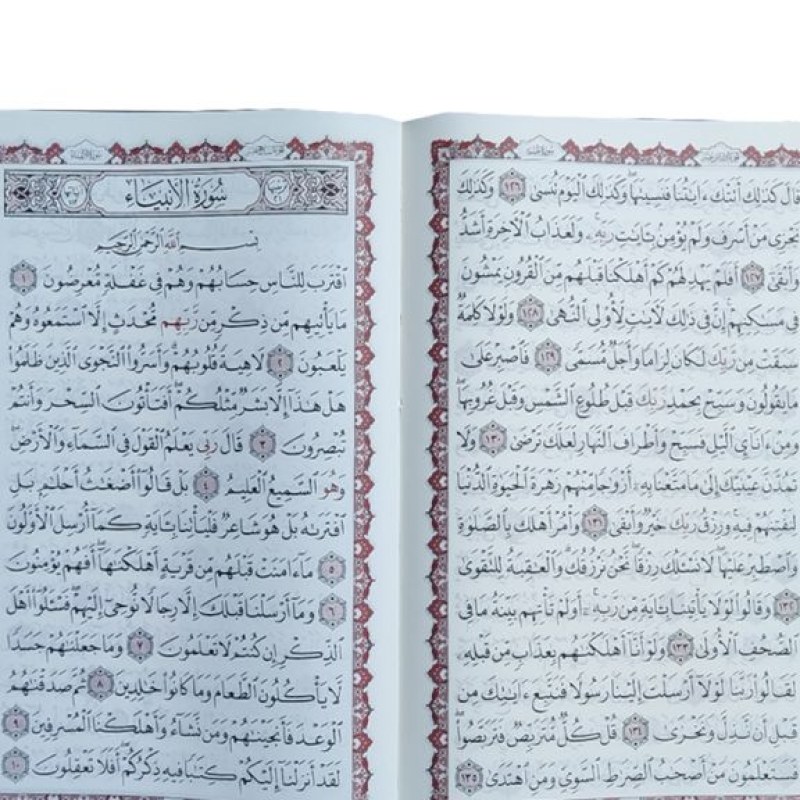 قَالَ كَذَٰلِكَ أَتَتْكَ ءَايَٰتُنَا فَنَسِيتَهَا وَكَذَٰلِكَ ٱلْيَوْمَ تُنسَىٰ ١٢٦ وَكَذَٰلِكَ
نَجْزِى مَنْ أَسْرَفَ وَلَمْ يُؤْمِنۢ بِـَٔايَٰتِ رَبِّهِۦ وَلَعَذَابُ ٱلْءَاخِرَةِ أَشَدُّ
وَأَبْقَىٰٓ ١٢٧ أَفَلَمْ يَهْدِ لَهُمْ كَمْ أَهْلَكْنَا قَبْلَهُم مِّنَ ٱلْقُرُونِ يَمْشُونَ
فِى مَسَٰكِنِهِمْ إِنَّ فِى ذَٰلِكَ لَءَايَٰتٍ لِّأُو۟لِى ٱلنُّهَىٰ ١٢٨ وَلَوْلَا كَلِمَةٌ
سَبَقَتْ مِن رَّبِّكَ لَكَانَ لِزَامًا وَأَجَلٌ مُّسَمًّى ١٢٩ فَٱصْبِرْ عَلَىٰ
مَا يَقُولُونَ وَسَبِّحْ بِحَمْدِ رَبِّكَ قَبْلَ طُلُوعِ ٱلشَّمْسِ وَقَبْلَ غُرُوبِهَا
وَمِنْ ءَانَآئِ ٱلَّيْلِ فَسَبِّحْ وَأَطْرَافَ ٱلنَّهَارِ لَعَلَّكَ تَرْضَىٰ ١٣٠ وَلَا
تَمُدَّنَّ عَيْنَيْكَ إِلَىٰ مَا مَتَّعْنَا بِهِۦٓ أَزْوَٰجًا مِّنْهُمْ زَهْرَةَ ٱلْحَيَوٰةِ ٱلدُّنْيَا
لِنَفْتِنَهُمْ فِيهِ وَرِزْقُ رَبِّكَ خَيْرٌ وَأَبْقَىٰ ١٣١ وَأْمُرْ أَهْلَكَ بِٱلصَّلَوٰةِ
وَٱصْطَبِرْ عَلَيْهَا لَا نَسْـَٔلُكَ رِزْقًا نَّحْنُ نَرْزُقُكَ وَٱلْعَٰقِبَةُ لِلتَّقْوَىٰ
١٣٢ وَقَالُوا۟ لَوْلَا يَأْتِينَا بِـَٔايَةٍ مِّن رَّبِّهِۦٓ أَوَلَمْ تَأْتِهِم بَيِّنَةُ مَا فِى
ٱلصُّحُفِ ٱلْأُولَىٰ ١٣٣ وَلَوْ أَنَّآ أَهْلَكْنَٰهُم بِعَذَابٍ مِّن قَبْلِهِۦ
لَقَالُوا۟ رَبَّنَا لَوْلَآ أَرْسَلْتَ إِلَيْنَا رَسُولًا فَنَتَّبِعَ ءَايَٰتِكَ مِن
قَبْلِ أَن نَّذِلَّ وَنَخْزَىٰ ١٣٤ قُلْ كُلٌّ مُّتَرَبِّصٌ فَتَرَبَّصُوا۟
فَسَتَعْلَمُونَ مَنْ أَصْحَٰبُ ٱلصِّرَٰطِ ٱلسَّوِىِّ وَمَنِ ٱهْتَدَىٰ ١٣٥
سُورَةُ الأَنْبِيَاءِ
بِسْمِ ٱللَّهِ ٱلرَّحْمَٰنِ ٱلرَّحِيمِ
ٱقْتَرَبَ لِلنَّاسِ حِسَابُهُمْ وَهُمْ فِى غَفْلَةٍ مُّعْرِضُونَ ١
مَا يَأْتِيهِم مِّن ذِكْرٍ مِّن رَّبِّهِم مُّحْدَثٍ إِلَّا ٱسْتَمَعُوهُ وَهُمْ
يَلْعَبُونَ ٢ لَاهِيَةً قُلُوبُهُمْ وَأَسَرُّوا۟ ٱلنَّجْوَى ٱلَّذِينَ ظَلَمُوا۟
هَلْ هَٰذَآ إِلَّا بَشَرٌ مِّثْلُكُمْ أَفَتَأْتُونَ ٱلسِّحْرَ وَأَنتُمْ
تُبْصِرُونَ ٣ قَالَ رَبِّى يَعْلَمُ ٱلْقَوْلَ فِى ٱلسَّمَآءِ وَٱلْأَرْضِ
وَهُوَ ٱلسَّمِيعُ ٱلْعَلِيمُ ٤ بَلْ قَالُوٓا۟ أَضْغَٰثُ أَحْلَٰمٍۭ بَلِ
ٱفْتَرَىٰهُ بَلْ هُوَ شَاعِرٌ فَلْيَأْتِنَا بِـَٔايَةٍ كَمَآ أُرْسِلَ ٱلْأَوَّلُونَ
٥ مَآ ءَامَنَتْ قَبْلَهُم مِّن قَرْيَةٍ أَهْلَكْنَٰهَآ أَفَهُمْ يُؤْمِنُونَ
٦ وَمَآ أَرْسَلْنَا قَبْلَكَ إِلَّا رِجَالًا نُّوحِىٓ إِلَيْهِمْ فَسْـَٔلُوٓا۟ أَهْلَ
ٱلذِّكْرِ إِن كُنتُمْ لَا تَعْلَمُونَ ٧ وَمَا جَعَلْنَٰهُمْ جَسَدًا
لَّا يَأْكُلُونَ ٱلطَّعَامَ وَمَا كَانُوا۟ خَٰلِدِينَ ٨ ثُمَّ صَدَقْنَٰهُمُ
ٱلْوَعْدَ فَأَنجَيْنَٰهُمْ وَمَن نَّشَآءُ وَأَهْلَكْنَا ٱلْمُسْرِفِينَ ٩
لَقَدْ أَنزَلْنَآ إِلَيْكُمْ كِتَٰبًا فِيهِ ذِكْرُكُمْ أَفَلَا تَعْقِلُونَ ١٠